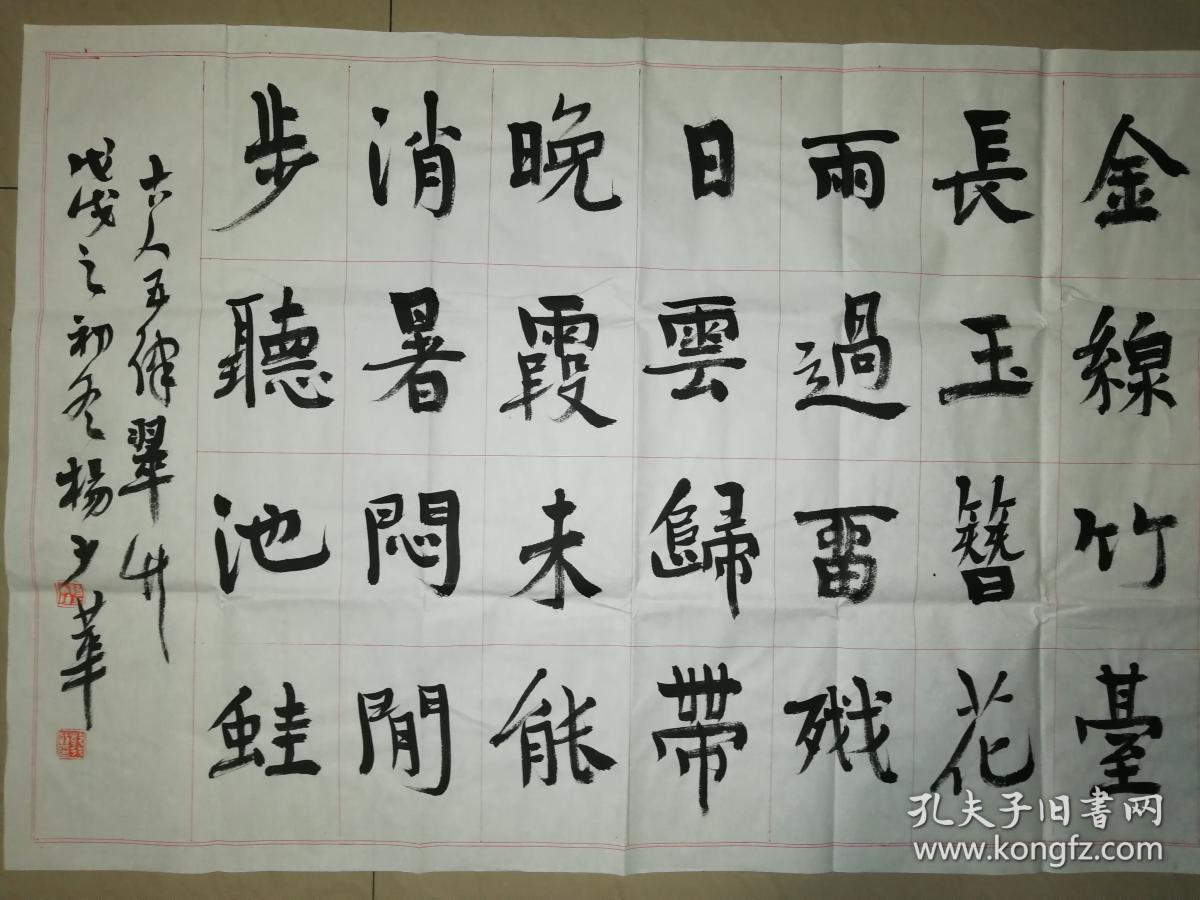 金線竹臺
長玉簪花
雨過畱殘
日雲歸帶
晚霞未能
消暑悶閒
步聽池蛙
古人五律翠竹
戊戌之初冬楊少華
孔夫子旧書网
www.kongfz.com